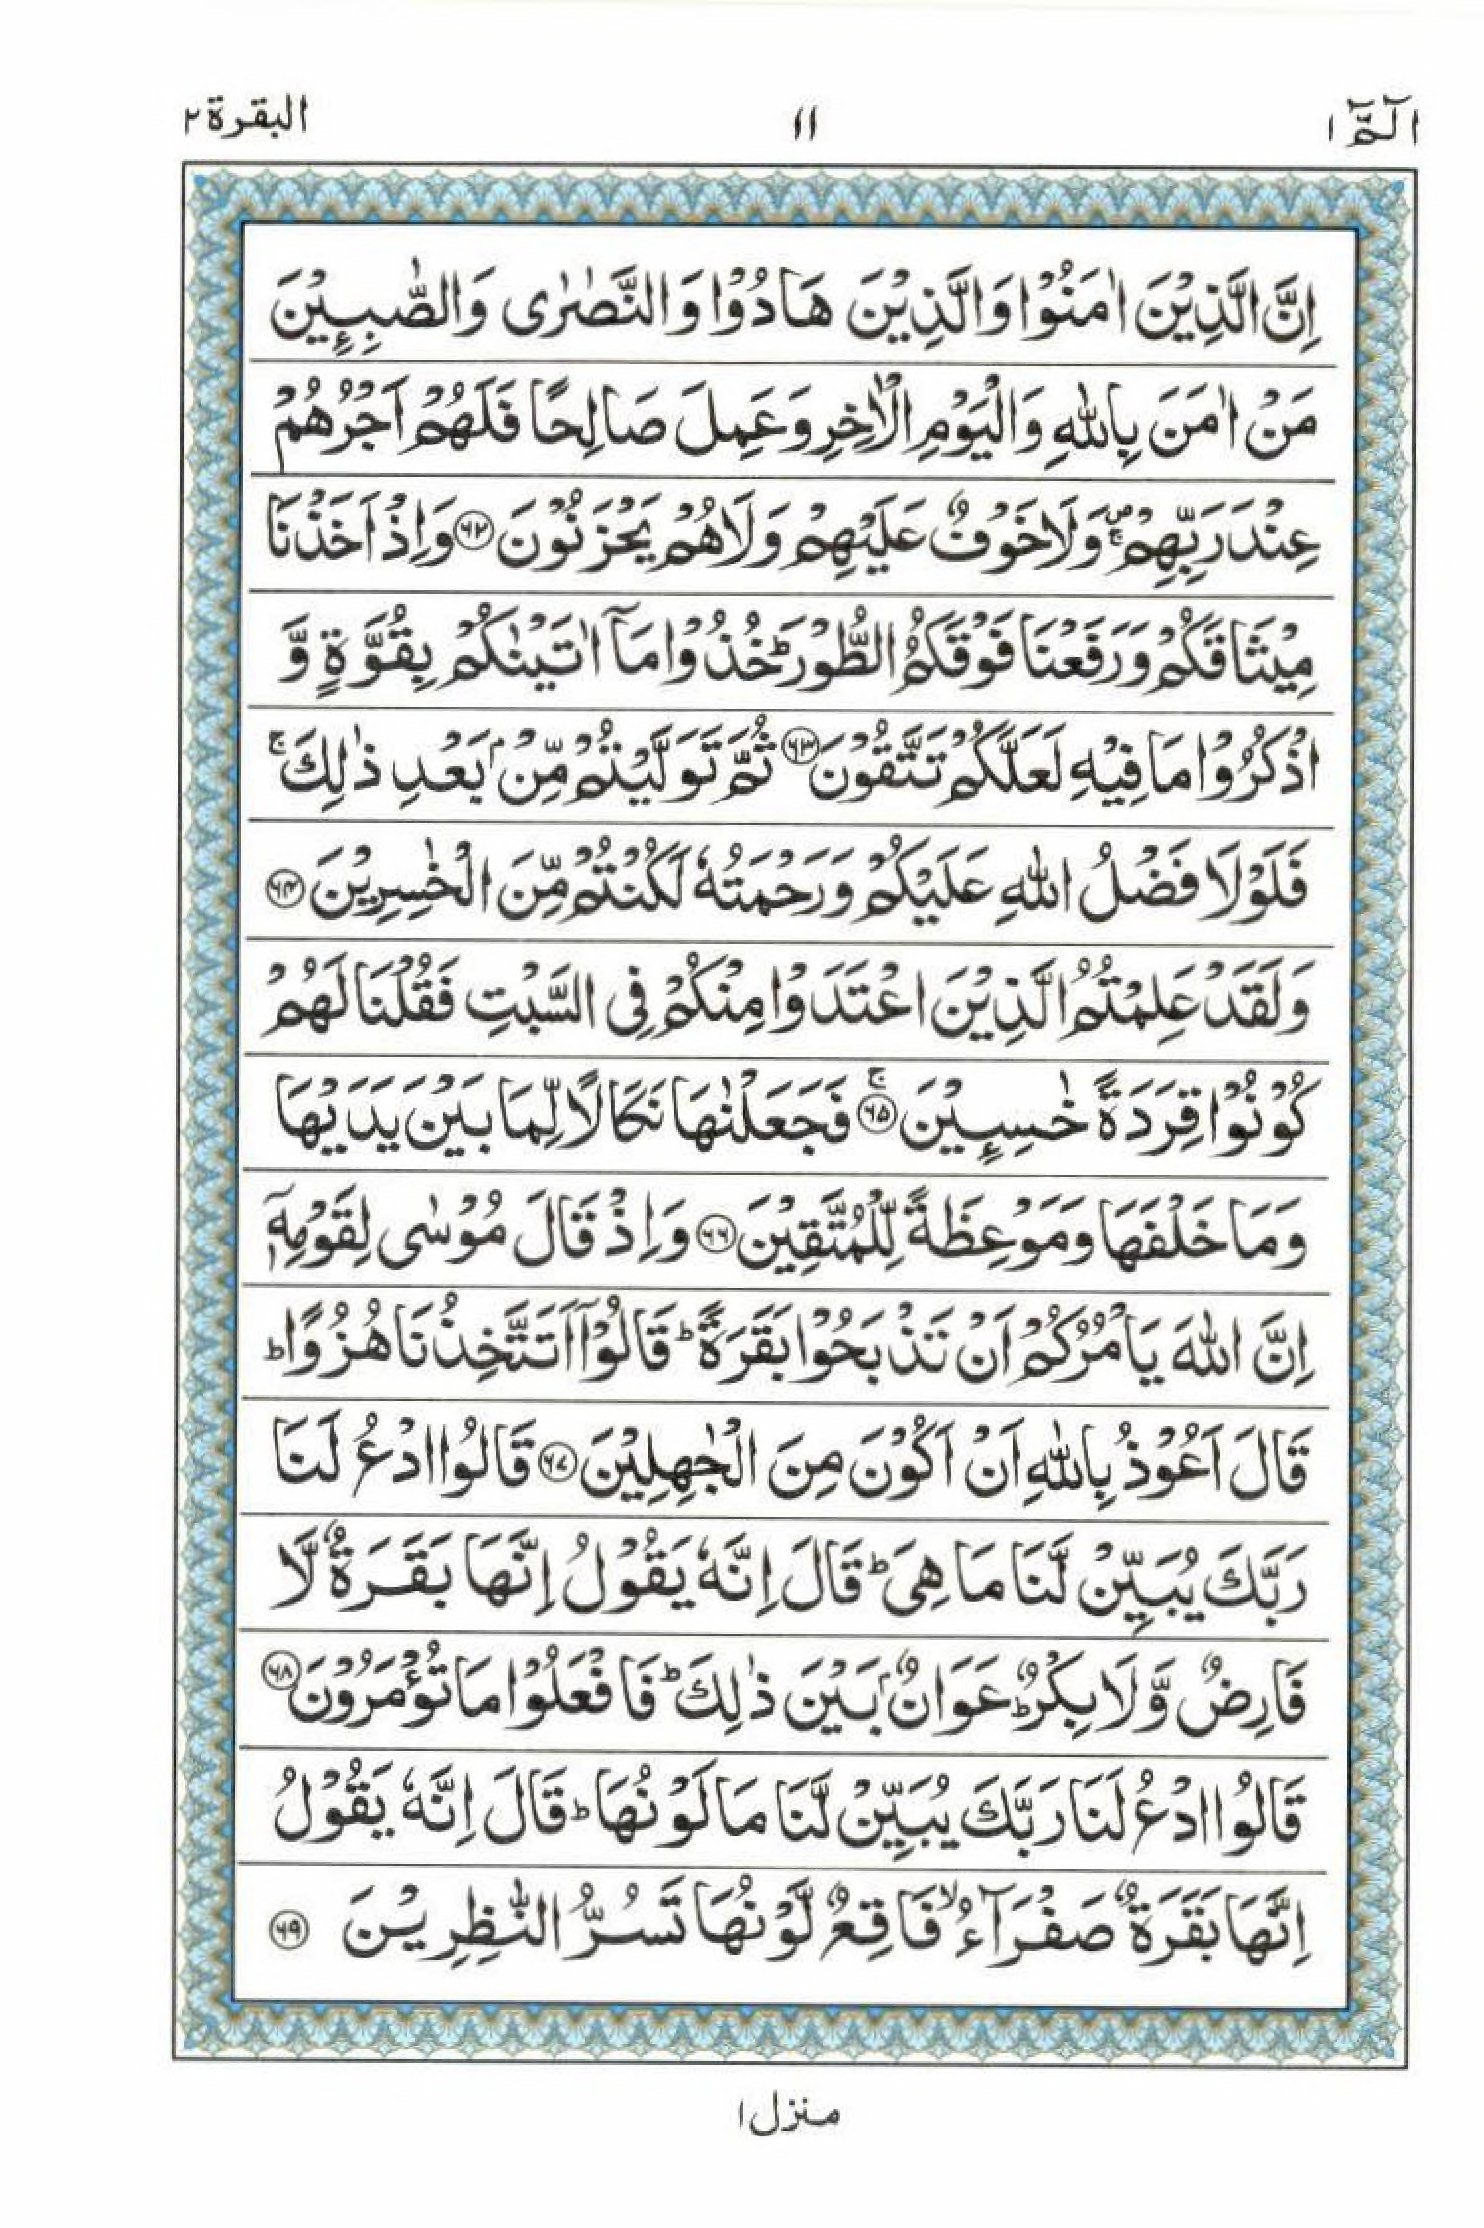 الٓمّٓ ١ ١١ البقرة ٢
اِنَّ الَّذِيْنَ اٰمَنُوْا وَالَّذِيْنَ هَادُوْا وَالنَّصٰرٰى وَالصّٰبِـِٕيْنَ
مَنْ اٰمَنَ بِاللّٰهِ وَالْيَوْمِ الْاٰخِرِ وَعَمِلَ صَالِحًا فَلَهُمْ اَجْرُهُمْ
عِنْدَ رَبِّهِمْ ۪ۚ وَلَا خَوْفٌ عَلَيْهِمْ وَلَا هُمْ يَحْزَنُوْنَ ﴿۶۲﴾ وَاِذْ اَخَذْنَا
مِيْثَاقَكُمْ وَرَفَعْنَا فَوْقَكُمُ الطُّوْرَ ؕ خُذُوْا مَاۤ اٰتَيْنٰكُمْ بِقُوَّةٍ وَّ
اذْكُرُوْا مَا فِيْهِ لَعَلَّكُمْ تَتَّقُوْنَ ﴿۶۳﴾ ثُمَّ تَوَلَّيْتُمْ مِّنْۢ بَعْدِ ذٰلِكَ ۚ
فَلَوْلَا فَضْلُ اللّٰهِ عَلَيْكُمْ وَرَحْمَتُهٗ لَكُنْتُمْ مِّنَ الْخٰسِرِيْنَ ﴿۶۴﴾
وَلَقَدْ عَلِمْتُمُ الَّذِيْنَ اعْتَدَوْا مِنْكُمْ فِى السَّبْتِ فَقُلْنَا لَهُمْ
كُوْنُوْا قِرَدَةً خٰسِـِٕيْنَ ﴿۶۵﴾ ۚ فَجَعَلْنٰهَا نَكَالًا لِّمَا بَيْنَ يَدَيْهَا
وَمَا خَلْفَهَا وَمَوْعِظَةً لِّلْمُتَّقِيْنَ ﴿۶۶﴾ وَاِذْ قَالَ مُوْسٰى لِقَوْمِهٖۤ
اِنَّ اللّٰهَ يَاْمُرُكُمْ اَنْ تَذْبَحُوْا بَقَرَةً ؕ قَالُوْۤا اَتَتَّخِذُنَا هُزُوًا ؕ
قَالَ اَعُوْذُ بِاللّٰهِ اَنْ اَكُوْنَ مِنَ الْجٰهِلِيْنَ ﴿۶۷﴾ قَالُوا ادْعُ لَنَا
رَبَّكَ يُبَيِّنْ لَّنَا مَا هِىَ ؕ قَالَ اِنَّهٗ يَقُوْلُ اِنَّهَا بَقَرَةٌ لَّا
فَارِضٌ وَّلَا بِكْرٌ ؕ عَوَانٌۢ بَيْنَ ذٰلِكَ ؕ فَافْعَلُوْا مَا تُؤْمَرُوْنَ ﴿۶۸﴾
قَالُوا ادْعُ لَنَا رَبَّكَ يُبَيِّنْ لَّنَا مَا لَوْنُهَا ؕ قَالَ اِنَّهٗ يَقُوْلُ
اِنَّهَا بَقَرَةٌ صَفْرَآءُ ۙ فَاقِعٌ لَّوْنُهَا تَسُرُّ النّٰظِرِيْنَ ﴿۶۹﴾
منزل ١